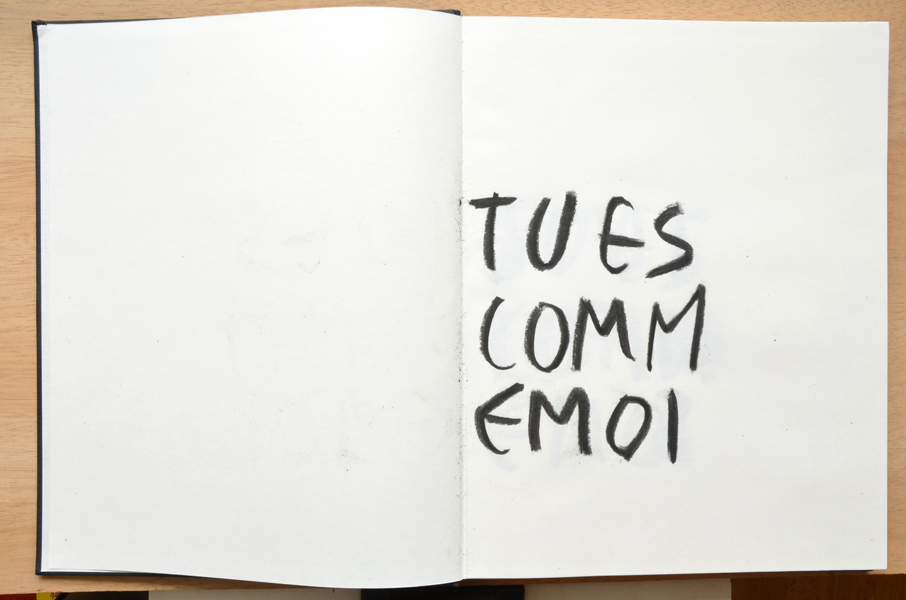 TU ES
COMM
EMOI